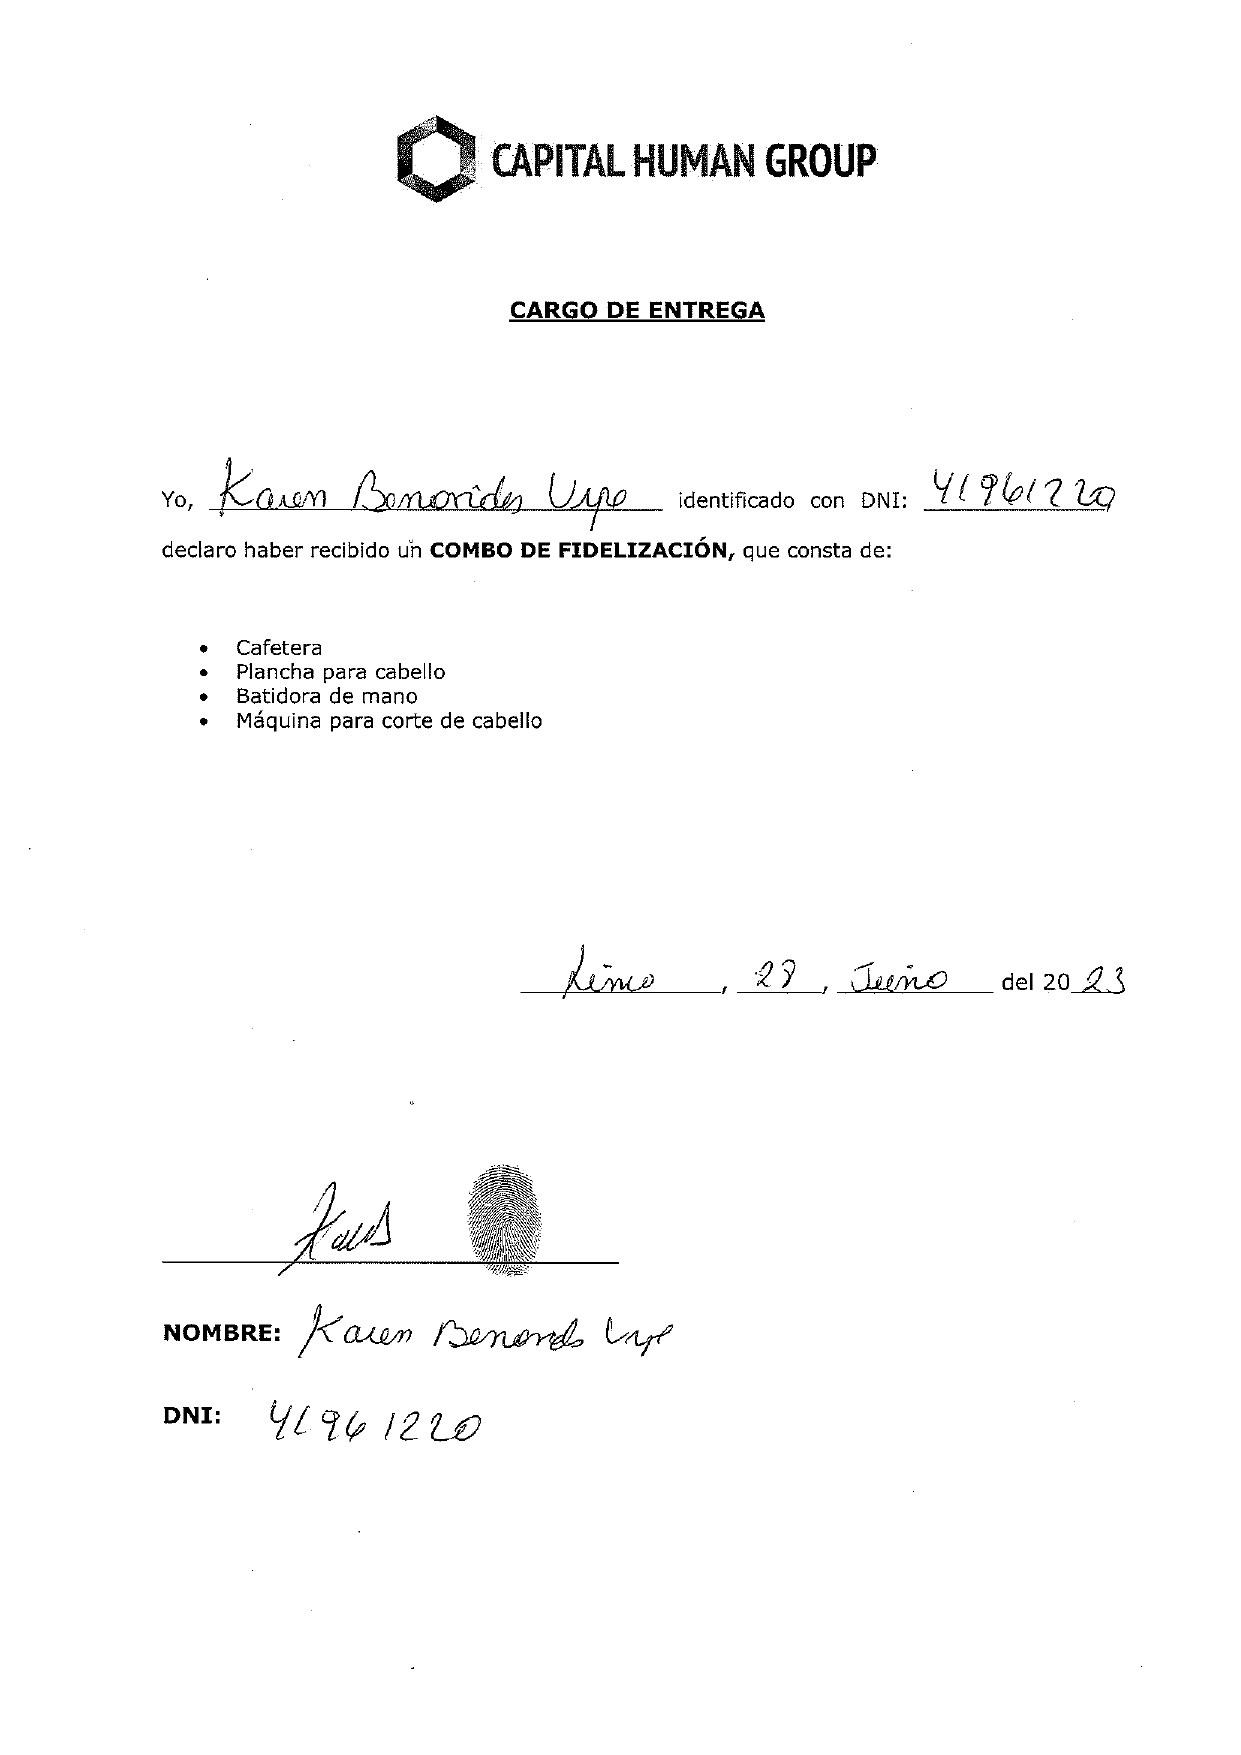 CAPITAL HUMAN GROUP
CARGO DE ENTREGA
Yo, Karen Benavides Urpe identificado con DNI: 41961220
declaro haber recibido un COMBO DE FIDELIZACIÓN, que consta de:
• Cafetera
• Plancha para cabello
• Batidora de mano
• Máquina para corte de cabello
Lima, 27, Junio del 2023
NOMBRE: Karen Benavides Urpe
DNI: 41961220